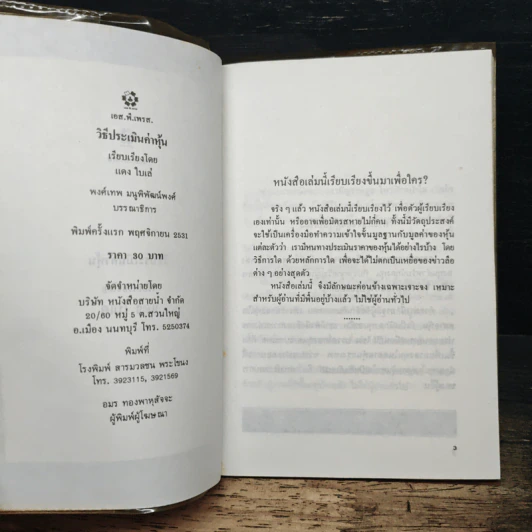 เอส.พี.เพรส.
วิธีประเมินค่าหุ้น
เรียบเรียงโดย
แดง ใบเล่
พงศ์เทพ มนูพิพัฒน์พงศ์
บรรณาธิการ
พิมพ์ครั้งแรก พฤศจิกายน 2531
ราคา 30 บาท
จัดจำหน่ายโดย
บริษัท หนังสือสายน้ำ จำกัด
20/60 หมู่ 5 ต.สวนใหญ่
อ.เมือง นนทบุรี โทร. 5250374
พิมพ์ที่
โรงพิมพ์ สารมวลชน พระโขนง
โทร. 3923115, 3921569
อมร ทองพาหุสัจจะ
ผู้พิมพ์ผู้โฆษณา
หนังสือเล่มนี้เรียบเรียงขึ้นมาเพื่อใคร?
จริง ๆ แล้ว หนังสือเล่มนี้เรียบเรียงไว้ เพื่อตัวผู้เรียบเรียง
เองเท่านั้น หรืออาจเพื่อมิตรสหายไม่กี่คน ทั้งนี้มีวัตถุประสงค์
จะใช้เป็นเครื่องมือทำความเข้าใจขั้นมูลฐานกับมูลค่าของหุ้น
แต่ละตัวว่า เรามีหนทางประเมินราคาของหุ้นได้อย่างไรบ้าง โดย
วิธีการใด ด้วยหลักการใด เพื่อจะได้ไม่ตกเป็นเหยื่อของข่าวลือ
ต่าง ๆ อย่างสุดตัว
หนังสือเล่มนี้ จึงมีลักษณะค่อนข้างเฉพาะเจาะจง เหมาะ
สำหรับผู้อ่านที่มีพื้นอยู่บ้างแล้ว ไม่ใช่ผู้อ่านทั่วไป
.......
3